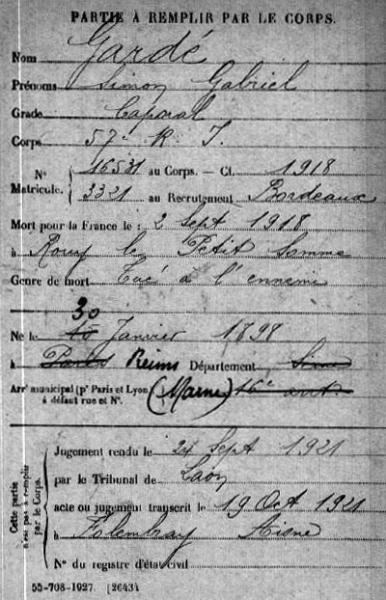 PARTIE À REMPLIR PAR LE CORPS.
Nom Gardé
Prénoms Simon Gabriel
Grade Caporal
Corps 57e R. I.
N° Matricule. { 16531 au Corps. — Cl. 1918
3321 au Recrutement Bordeaux
Mort pour la France le : 2 Sept 1918
à Rouy le Petit Somme
Genre de mort Tué à l'ennemi
30
Né le 10 Janvier 1898
à Paris Reims Département Seine
Arrt municipal (pr Paris et Lyon), à défaut rue et N°. (Marne) 16e arrt
Cette partie n'est pas à remplir par le Corps.
Jugement rendu le 24 Sept 1921
par le Tribunal de Laon
acte ou jugement transcrit le 19 Oct 1921
à Folembray Aisne
N° du registre d'état civil
55-708-1927. [26434